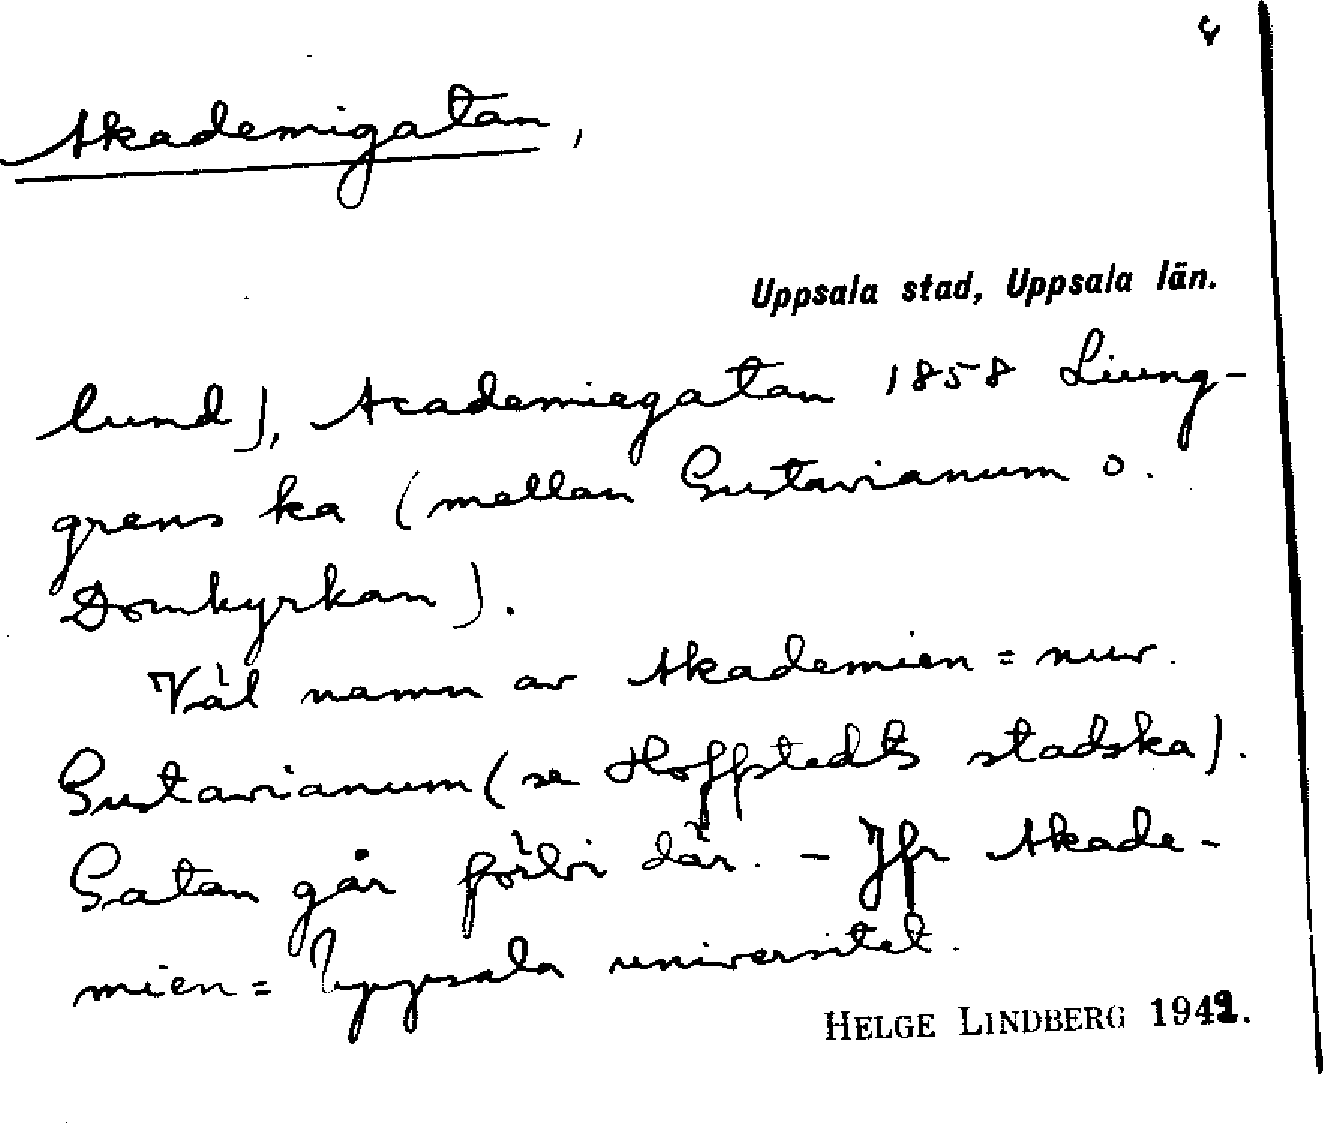 Akademigatan,
Uppsala stad, Uppsala län.
lund), Academiegatan 1858 Liung-
grens ka (mellan Gustavianum o.
Domkyrkan).
Väl namn av Akademien = nuv.
Gustavianum (se Hoffstedts stadska).
Gatan går förbi där. - Jfr Akade-
mien = Uppsala universitet.
HELGE LINDBERG